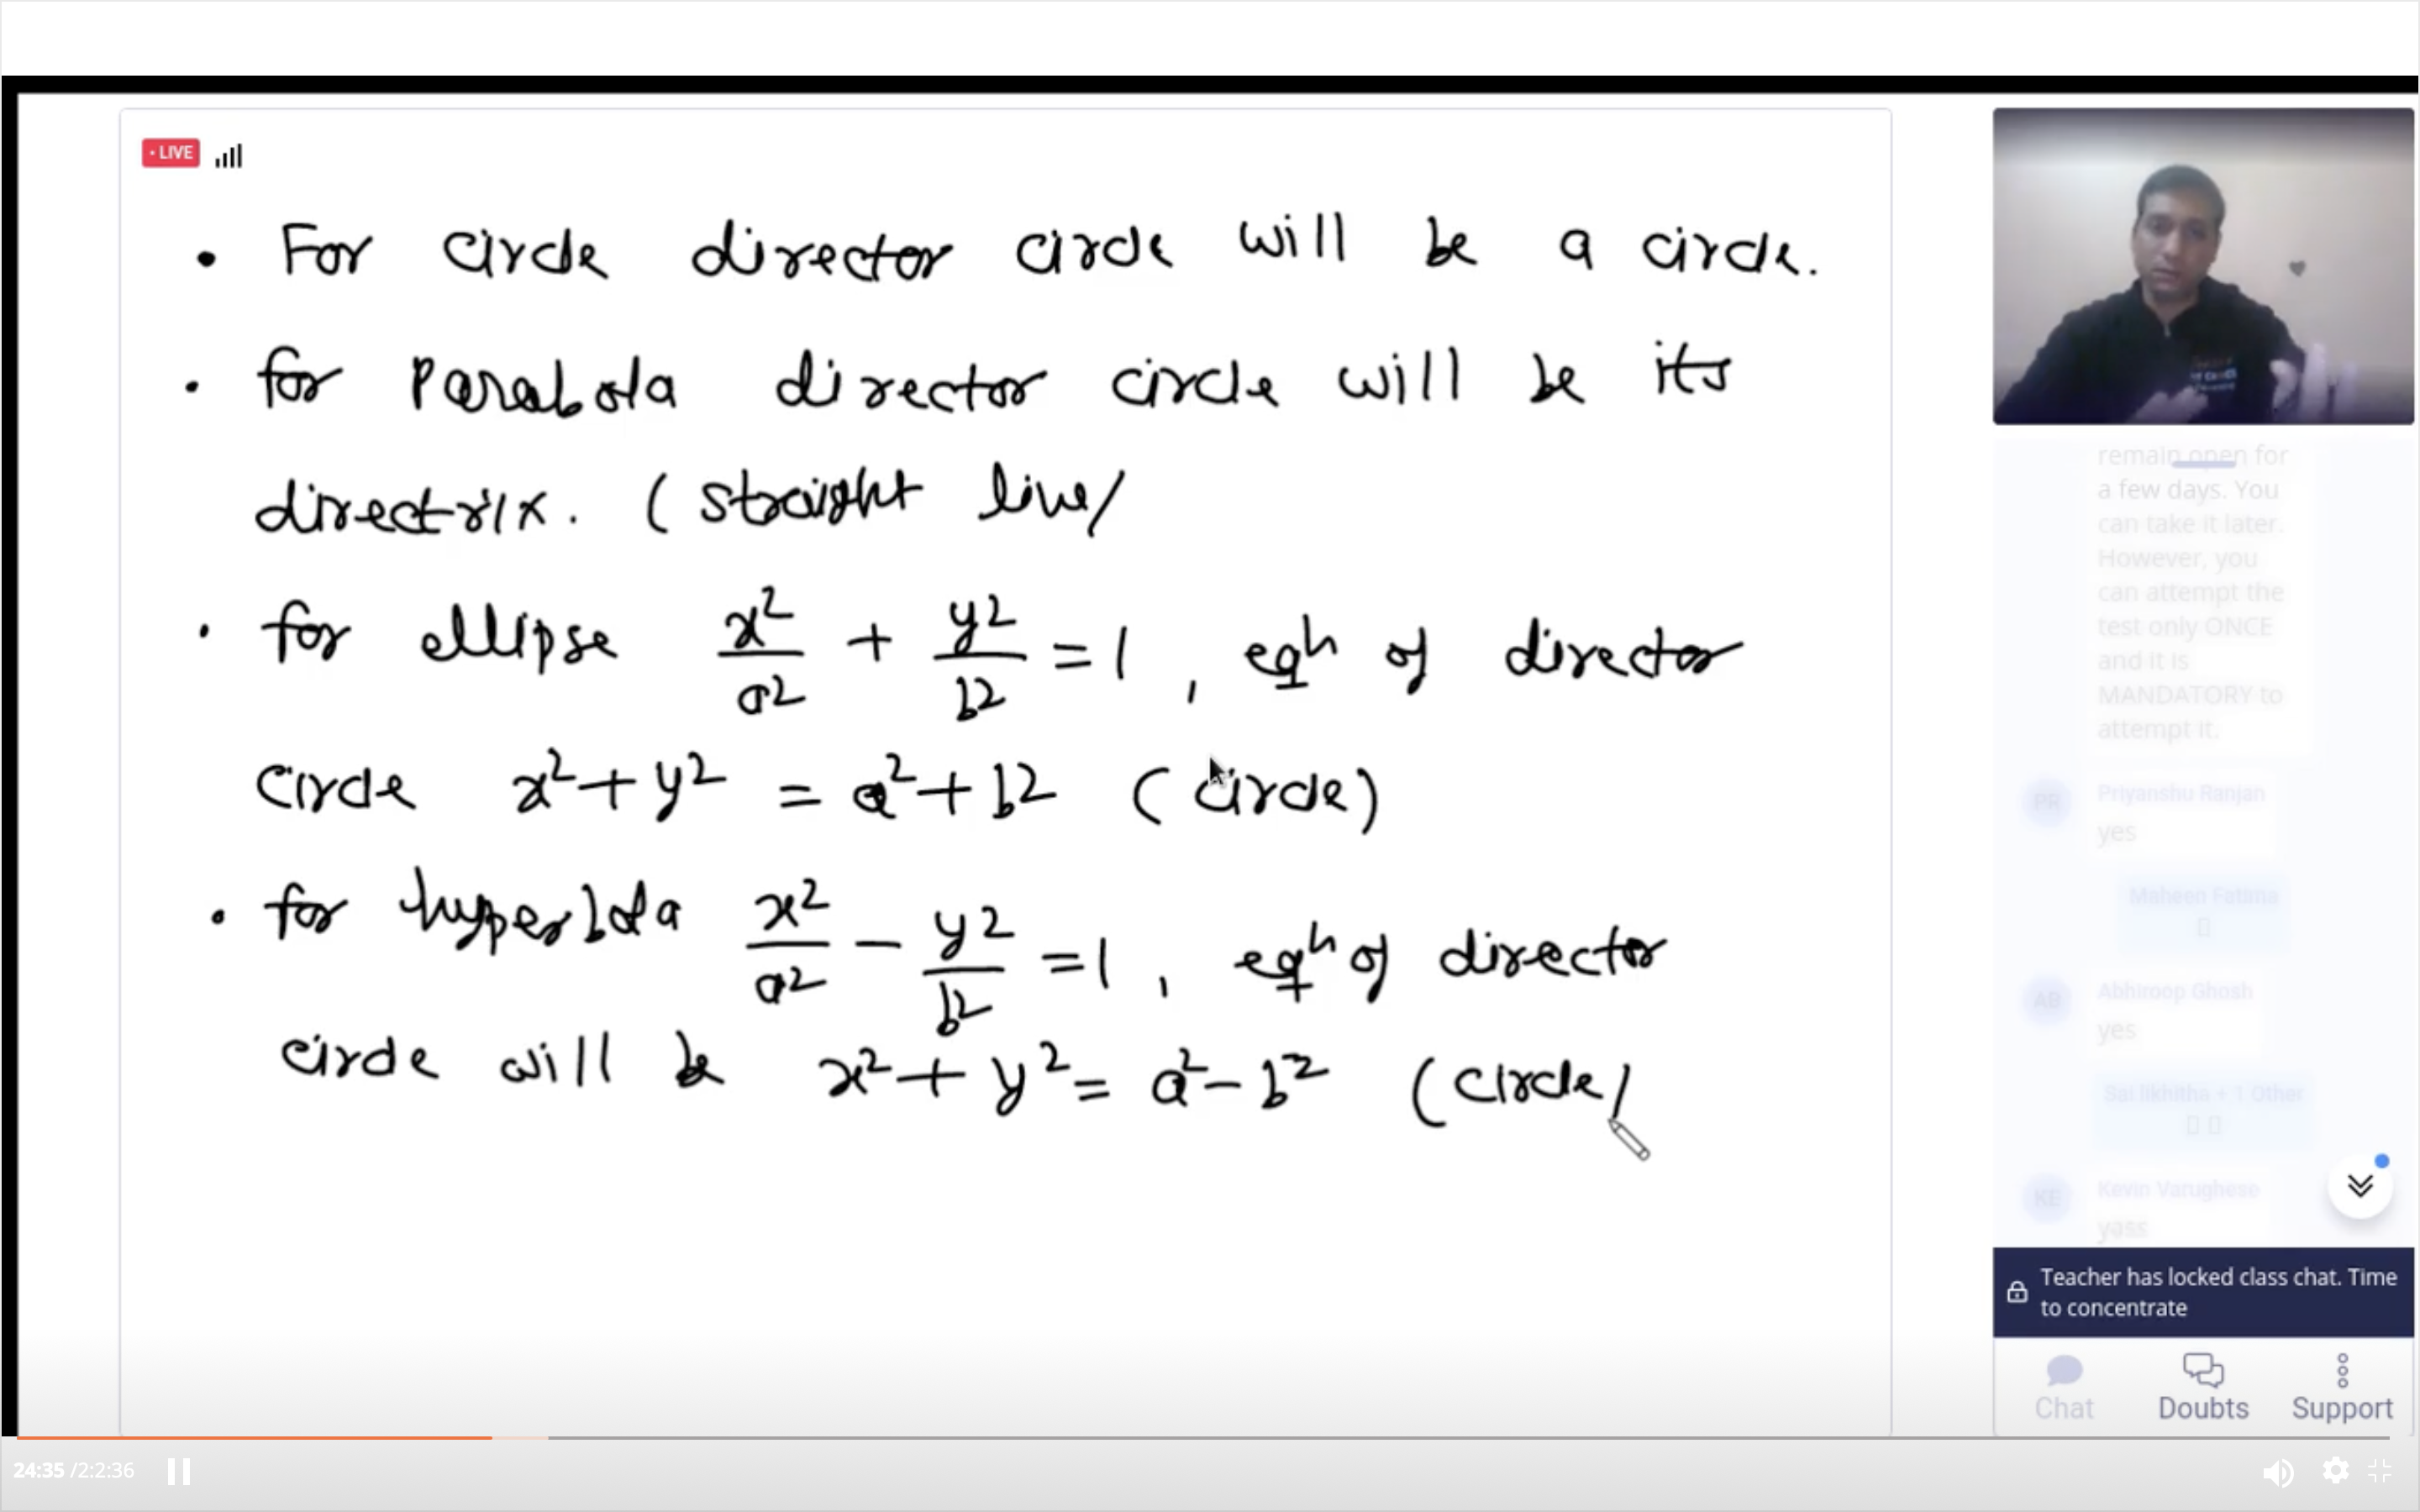 • LIVE
• For circle director circle will be a circle.
• for Parabola director circle will be its
directrix. (straight line)
• for ellipse x²/a² + y²/b² = 1, eqn of director
circle x² + y² = a² + b² (circle)
• for hyperbola x²/a² − y²/b² = 1, eqn of director
circle will be x² + y² = a² − b² (circle)
remain open for
a few days. You
can take it later.
However, you
can attempt the
test only ONCE
and it is
MANDATORY to
attempt it.
PR Priyanshu Ranjan
yes
Maheen Fatima
AB Abhiroop Ghosh
yes
Sai likhitha + 1 Other
KE Kevin Varughese
yass
Teacher has locked class chat. Time
to concentrate
Chat Doubts Support
24:35 /2:2:36